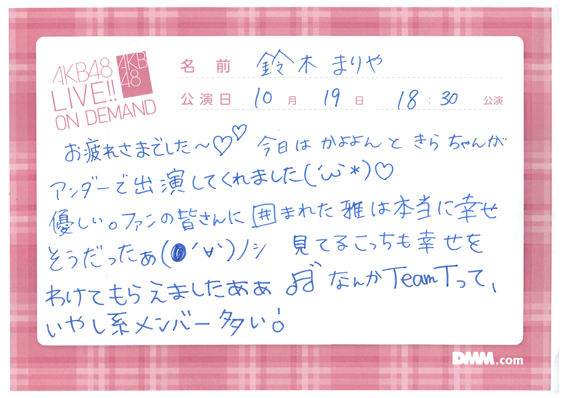 AKB48
LIVE!!
ON DEMAND
AKB
48
名前 鈴木まりや
公演日 10月 19日 18:30 公演
お疲れさまでした～♡♡ 今日は かよよんと きらちゃんが
アンダーで出演してくれました(´ω`*)♡
優しい。ファンの皆さんに囲まれた雅は本当に幸せ
そうだったぁ(●´∀`)ノシ 見てるこっちも幸せを
わけてもらえましたぁぁ♬ なんかTeamTって、
いやし系メンバー多い！
DMM.com